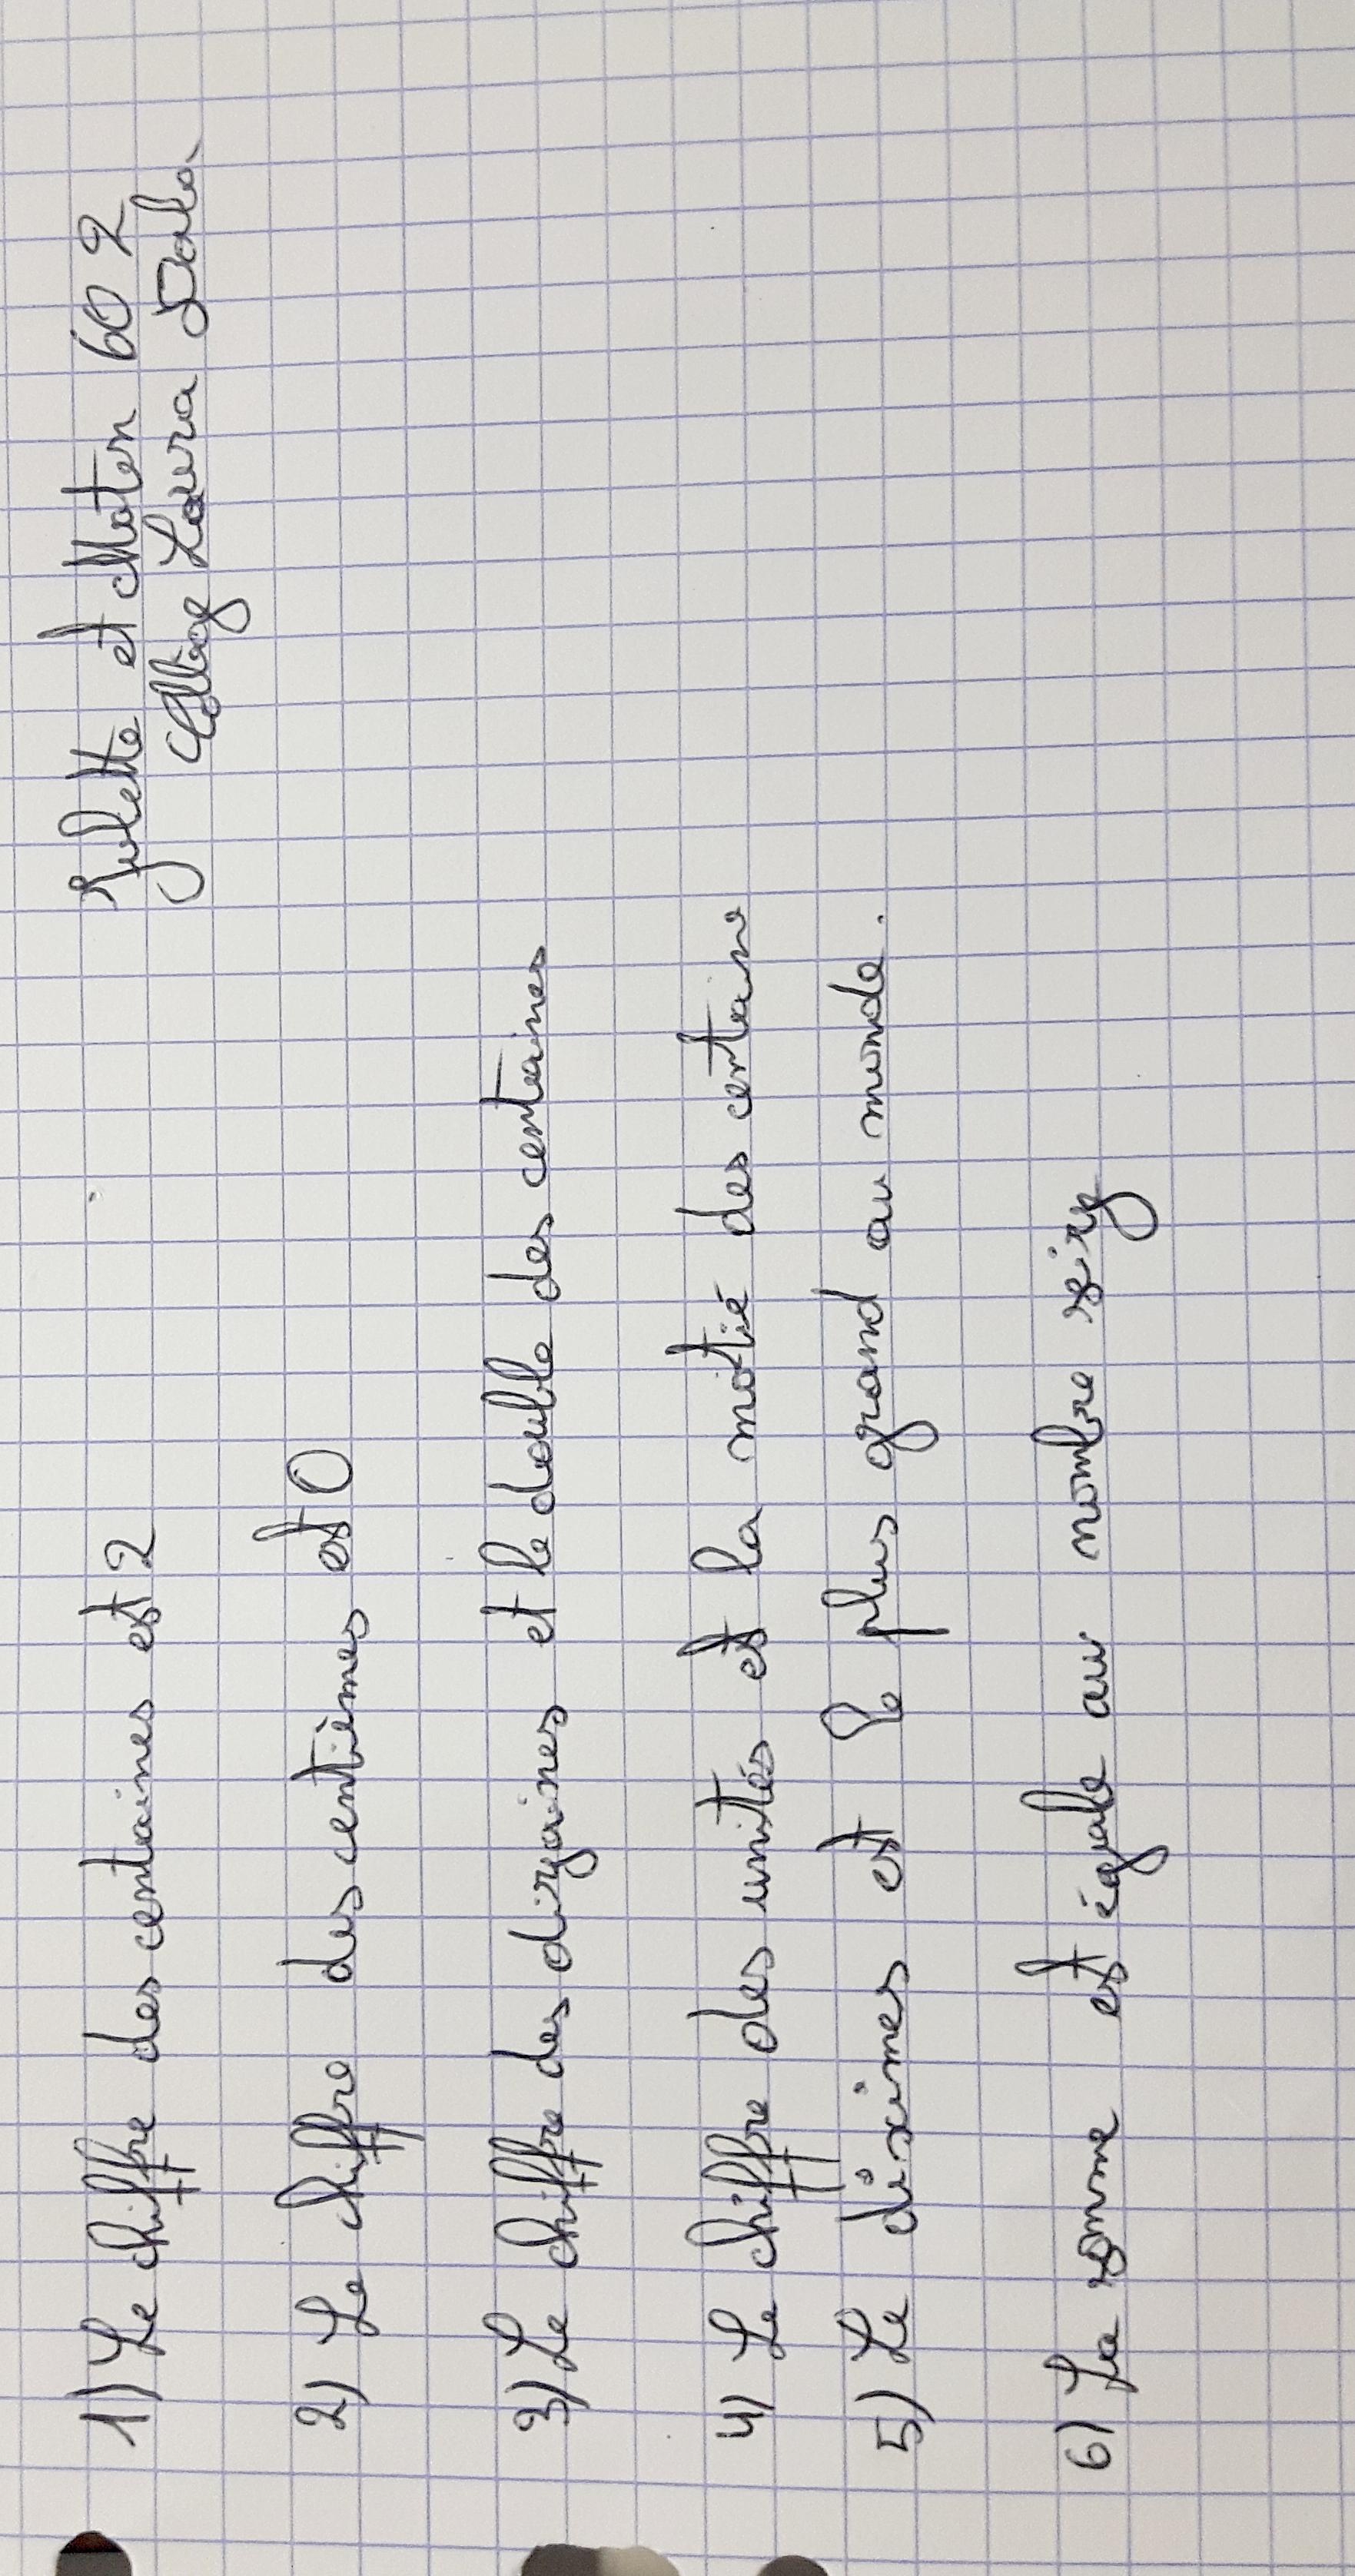 Juliette et Maten 602
Laura
1) Le chiffre des centaines est 2
2) Le chiffre des centièmes est 0
3) Le chiffre des dizaines et le double des centaines
4) Le chiffre des unités est la motié des centaine
5) Le dixímes est le plus grand au munde.
6) La somme est égale au nombre sizy